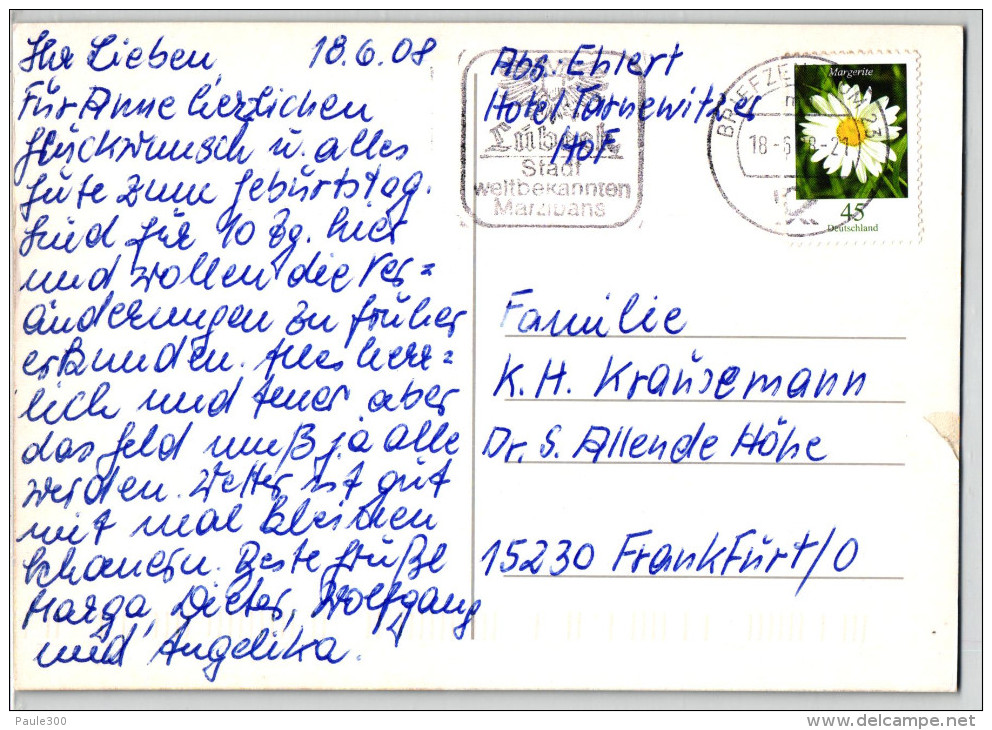 Ihr Lieben, 18.6.08
Für Anne herzlichen
Glückwunsch u. alles
Gute zum Geburtstag.
Sind für 10 Tg. hier
und wollen die Ver=
änderungen zu früher
erkunden. Alles herr=
lich und teuer aber
das Geld muß ja alle
werden. Wetter ist gut
mit mal kleinen
Schauern. Beste Grüße
Marga, Dieter, Wolfgang
und Angelika.
Abs. Ehlert
Hotel Tarnewitzer
Hof
Lübeck
Stadt
weltbekannten
Marzipans
BRIEFZENTRUM 23
18-6
-21
Margerite
45
Deutschland
Familie
K. H. Krausemann
Dr. S. Allende Höhe
15230 Frankfurt/O
Paule300
delcampe.net